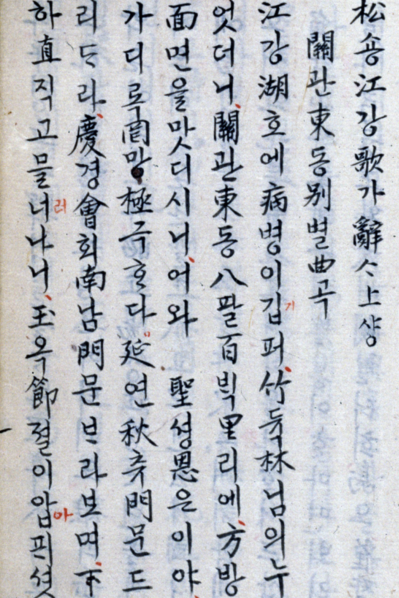 松숑江강歌가辭ᄉᆞ上샹
關관東동別별曲곡
江강湖호에病병이깁퍼竹듁林님의누
엇더니關관東동八팔百ᄇᆡᆨ里리에方방
面면을맛디시니어와 聖셩恩은이야
가디록罔망極극ᄒᆞ다延연秋츄門문드
리ᄃᆞ라慶경會회南남門문ᄇᆞ라보며下
하直직고믈너나니玉옥節졀이압ᄑᆡ셧